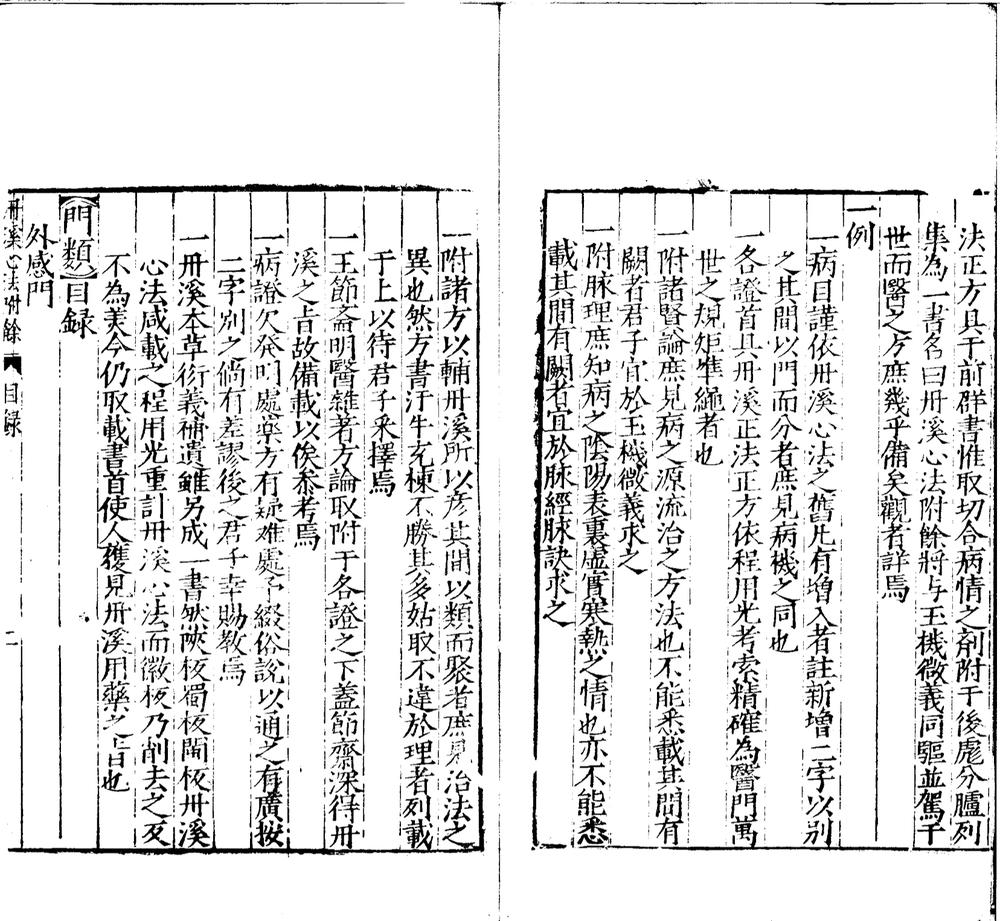 法正方具于前群書惟取切合病情之劑附于後麁分臚列
集為一書名曰丹溪心法附餘將与玉機微義同驅並駕于
世而醫之方庶幾乎備矣觀者詳焉
一例
一病目謹依丹溪心法之舊凡有增入者註新增二字以別
之其間以門而分者庶見病機之同也
一各證首具丹溪正法正方依程用光考索精確為醫門萬
世之規矩準繩者也
一附諸賢論庶見病之源流治之方法也不能悉載其間有
闕者君子宜於玉機微義求之
一附脉理庶知病之陰陽表裏虛實寒熱之情也亦不能悉
載其間有闕者宜於脉經脉訣求之
一附諸方以輔丹溪所以彦其間以類而聚者庶見治法之
異也然方書汗牛充棟不勝其多姑取不違於理者列載
于上以待君子采擇焉
一王節齋明醫雜著方論取附于各證之下蓋節齋深得丹
溪之旨故備載以俟叅考焉
一病證欠発明處藥方有疑难處予綴俗說以通之有廣按
二字別之倘有差謬後之君子幸賜教焉
一丹溪本草衍義補遺雖另成一書然陝板蜀板閩板丹溪
心法咸載之程用光重訂丹溪心法而徽板乃削去之反
不為美今仍取載書首使人獲見丹溪用藥之旨也
門類目録
外感門
丹溪心法附餘 目録 二